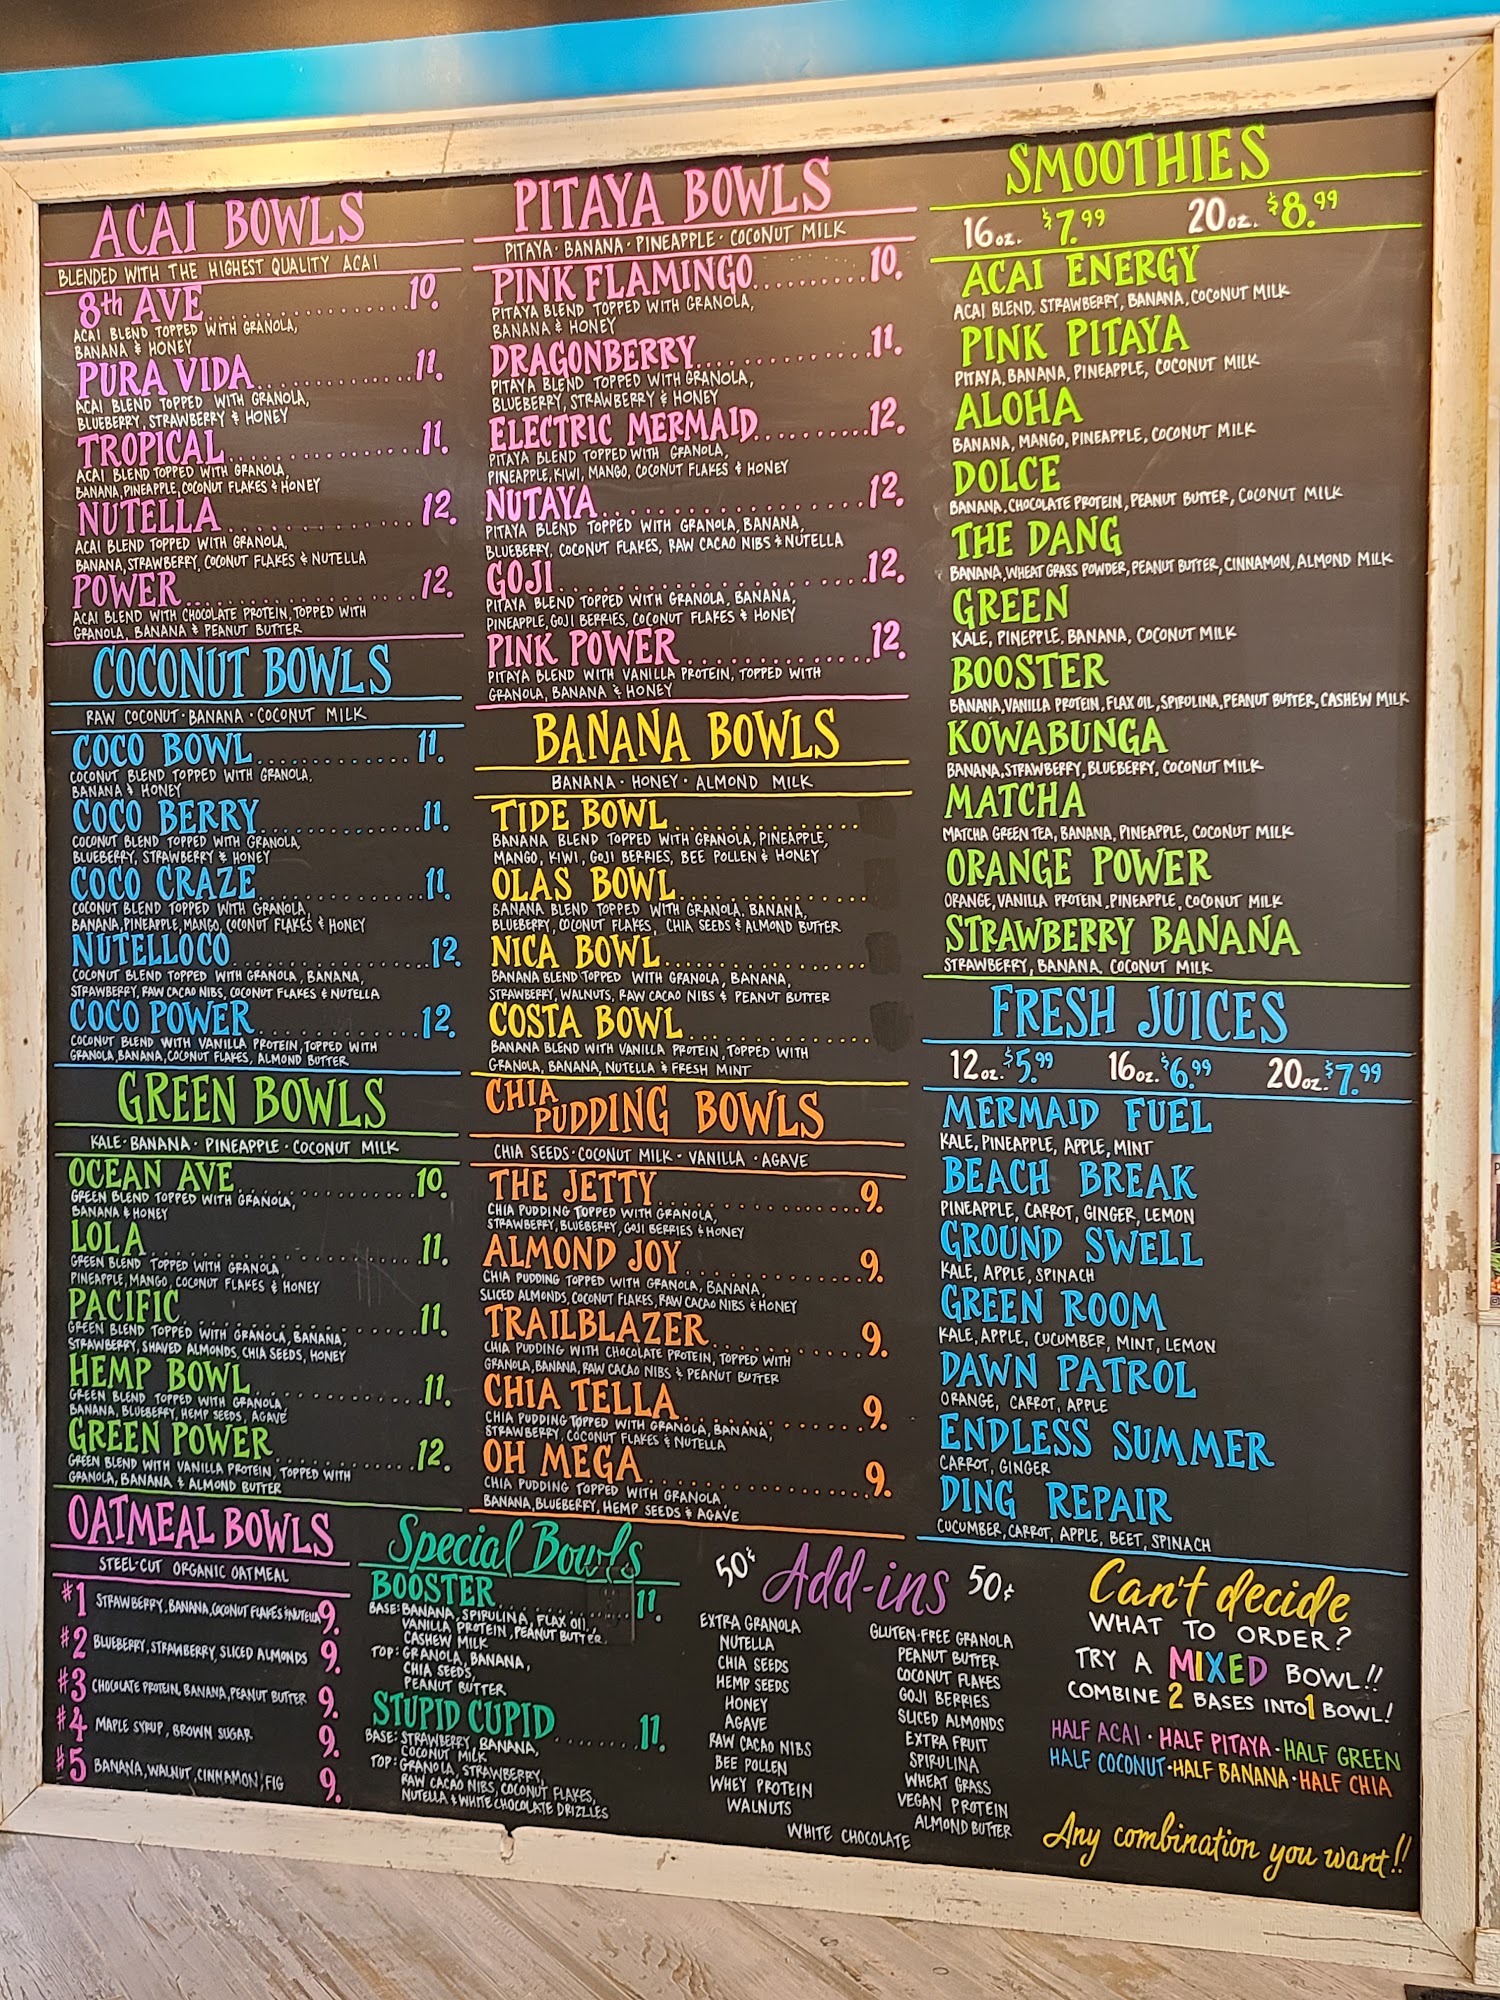 ACAI BOWLS
BLENDED WITH THE HIGHEST QUALITY ACAI
8th AVE 10.
ACAI BLEND TOPPED WITH GRANOLA,
BANANA & HONEY
PURA VIDA 11.
ACAI BLEND TOPPED WITH GRANOLA,
BLUEBERRY, STRAWBERRY & HONEY
TROPICAL 11.
ACAI BLEND TOPPED WITH GRANOLA,
BANANA, PINEAPPLE, COCONUT FLAKES & HONEY
NUTELLA 12.
ACAI BLEND TOPPED WITH GRANOLA,
BANANA, STRAWBERRY, COCONUT FLAKES & NUTELLA
POWER 12.
ACAI BLEND WITH CHOCOLATE PROTEIN, TOPPED WITH
GRANOLA, BANANA & PEANUT BUTTER
COCONUT BOWLS
RAW COCONUT · BANANA · COCONUT MILK
COCO BOWL 11.
COCONUT BLEND TOPPED WITH GRANOLA,
BANANA & HONEY
COCO BERRY 11.
COCONUT BLEND TOPPED WITH GRANOLA,
BLUEBERRY, STRAWBERRY & HONEY
COCO CRAZE 11.
COCONUT BLEND TOPPED WITH GRANOLA,
BANANA, PINEAPPLE, MANGO, COCONUT FLAKES & HONEY
NUTELLOCO 12.
COCONUT BLEND TOPPED WITH GRANOLA, BANANA,
STRAWBERRY, RAW CACAO NIBS, COCONUT FLAKES & NUTELLA
COCO POWER 12.
COCONUT BLEND WITH VANILLA PROTEIN, TOPPED WITH
GRANOLA, BANANA, COCONUT FLAKES, ALMOND BUTTER
GREEN BOWLS
KALE · BANANA · PINEAPPLE · COCONUT MILK
OCEAN AVE 10.
GREEN BLEND TOPPED WITH GRANOLA,
BANANA & HONEY
LOLA 11.
GREEN BLEND TOPPED WITH GRANOLA,
PINEAPPLE, MANGO, COCONUT FLAKES & HONEY
PACIFIC 11.
GREEN BLEND TOPPED WITH GRANOLA, BANANA,
STRAWBERRY, SHAVED ALMONDS, CHIA SEEDS, HONEY
HEMP BOWL 11.
GREEN BLEND TOPPED WITH GRANOLA,
BANANA, BLUEBERRY, HEMP SEEDS, AGAVE
GREEN POWER 12.
GREEN BLEND WITH VANILLA PROTEIN, TOPPED WITH
GRANOLA, BANANA & ALMOND BUTTER
OATMEAL BOWLS
STEEL-CUT ORGANIC OATMEAL
#1 STRAWBERRY, BANANA, COCONUT FLAKES & NUTELLA 9.
#2 BLUEBERRY, STRAWBERRY, SLICED ALMONDS 9.
#3 CHOCOLATE PROTEIN, BANANA, PEANUT BUTTER 9.
#4 MAPLE SYRUP, BROWN SUGAR 9.
#5 BANANA, WALNUT, CINNAMON, FIG 9.
PITAYA BOWLS
PITAYA · BANANA · PINEAPPLE · COCONUT MILK
PINK FLAMINGO 10.
PITAYA BLEND TOPPED WITH GRANOLA,
BANANA & HONEY
DRAGONBERRY 11.
PITAYA BLEND TOPPED WITH GRANOLA,
BLUEBERRY, STRAWBERRY & HONEY
ELECTRIC MERMAID 12.
PITAYA BLEND TOPPED WITH GRANOLA,
PINEAPPLE, KIWI, MANGO, COCONUT FLAKES & HONEY
NUTAYA 12.
PITAYA BLEND TOPPED WITH GRANOLA, BANANA,
BLUEBERRY, COCONUT FLAKES, RAW CACAO NIBS & NUTELLA
GOJI 12.
PITAYA BLEND TOPPED WITH GRANOLA, BANANA,
PINEAPPLE, GOJI BERRIES, COCONUT FLAKES & HONEY
PINK POWER 12.
PITAYA BLEND WITH VANILLA PROTEIN, TOPPED WITH
GRANOLA, BANANA & HONEY
BANANA BOWLS
BANANA · HONEY · ALMOND MILK
TIDE BOWL
BANANA BLEND TOPPED WITH GRANOLA, PINEAPPLE,
MANGO, KIWI, GOJI BERRIES, BEE POLLEN & HONEY
OLAS BOWL
BANANA BLEND TOPPED WITH GRANOLA, BANANA,
BLUEBERRY, COCONUT FLAKES, CHIA SEEDS & ALMOND BUTTER
NICA BOWL
BANANA BLEND TOPPED WITH GRANOLA, BANANA,
STRAWBERRY, WALNUTS, RAW CACAO NIBS & PEANUT BUTTER
COSTA BOWL
BANANA BLEND WITH VANILLA PROTEIN, TOPPED WITH
GRANOLA, BANANA, NUTELLA & FRESH MINT
CHIA PUDDING BOWLS
CHIA SEEDS · COCONUT MILK · VANILLA · AGAVE
THE JETTY 9.
CHIA PUDDING TOPPED WITH GRANOLA,
STRAWBERRY, BLUEBERRY, GOJI BERRIES & HONEY
ALMOND JOY 9.
CHIA PUDDING TOPPED WITH GRANOLA, BANANA,
SLICED ALMONDS, COCONUT FLAKES, RAW CACAO NIBS & HONEY
TRAILBLAZER 9.
CHIA PUDDING WITH CHOCOLATE PROTEIN, TOPPED WITH
GRANOLA, BANANA, RAW CACAO NIBS & PEANUT BUTTER
CHIA TELLA 9.
CHIA PUDDING TOPPED WITH GRANOLA, BANANA,
STRAWBERRY, COCONUT FLAKES & NUTELLA
OH MEGA 9.
CHIA PUDDING TOPPED WITH GRANOLA,
BANANA, BLUEBERRY, HEMP SEEDS & AGAVE
Special Bowls
BOOSTER 11.
BASE: BANANA, SPIRULINA, FLAX OIL,
VANILLA PROTEIN, PEANUT BUTTER,
CASHEW MILK
TOP: GRANOLA, BANANA,
CHIA SEEDS,
PEANUT BUTTER
STUPID CUPID 11.
BASE: STRAWBERRY, BANANA,
COCONUT MILK
TOP: GRANOLA, STRAWBERRY,
RAW CACAO NIBS, COCONUT FLAKES,
NUTELLA & WHITE CHOCOLATE DRIZZLES
50¢ Add-ins 50¢
EXTRA GRANOLA
NUTELLA
CHIA SEEDS
HEMP SEEDS
HONEY
AGAVE
RAW CACAO NIBS
BEE POLLEN
WHEY PROTEIN
WALNUTS
GLUTEN-FREE GRANOLA
PEANUT BUTTER
COCONUT FLAKES
GOJI BERRIES
SLICED ALMONDS
EXTRA FRUIT
SPIRULINA
WHEAT GRASS
VEGAN PROTEIN
ALMOND BUTTER
WHITE CHOCOLATE
SMOOTHIES
16oz. $7.99 20oz. $8.99
ACAI ENERGY
ACAI BLEND, STRAWBERRY, BANANA, COCONUT MILK
PINK PITAYA
PITAYA, BANANA, PINEAPPLE, COCONUT MILK
ALOHA
BANANA, MANGO, PINEAPPLE, COCONUT MILK
DOLCE
BANANA, CHOCOLATE PROTEIN, PEANUT BUTTER, COCONUT MILK
THE DANG
BANANA, WHEAT GRASS POWDER, PEANUT BUTTER, CINNAMON, ALMOND MILK
GREEN
KALE, PINEPPLE, BANANA, COCONUT MILK
BOOSTER
BANANA, VANILLA PROTEIN, FLAX OIL, SPIRULINA, PEANUT BUTTER, CASHEW MILK
KOWABUNGA
BANANA, STRAWBERRY, BLUEBERRY, COCONUT MILK
MATCHA
MATCHA GREEN TEA, BANANA, PINEAPPLE, COCONUT MILK
ORANGE POWER
ORANGE, VANILLA PROTEIN, PINEAPPLE, COCONUT MILK
STRAWBERRY BANANA
STRAWBERRY, BANANA, COCONUT MILK
FRESH JUICES
12oz. $5.99 16oz. $6.99 20oz. $7.99
MERMAID FUEL
KALE, PINEAPPLE, APPLE, MINT
BEACH BREAK
PINEAPPLE, CARROT, GINGER, LEMON
GROUND SWELL
KALE, APPLE, SPINACH
GREEN ROOM
KALE, APPLE, CUCUMBER, MINT, LEMON
DAWN PATROL
ORANGE, CARROT, APPLE
ENDLESS SUMMER
CARROT, GINGER
DING REPAIR
CUCUMBER, CARROT, APPLE, BEET, SPINACH
Can't decide
WHAT TO ORDER?
TRY A MIXED BOWL!!
COMBINE 2 BASES INTO 1 BOWL!
HALF ACAI · HALF PITAYA · HALF GREEN
HALF COCONUT · HALF BANANA · HALF CHIA
Any combination you want!!